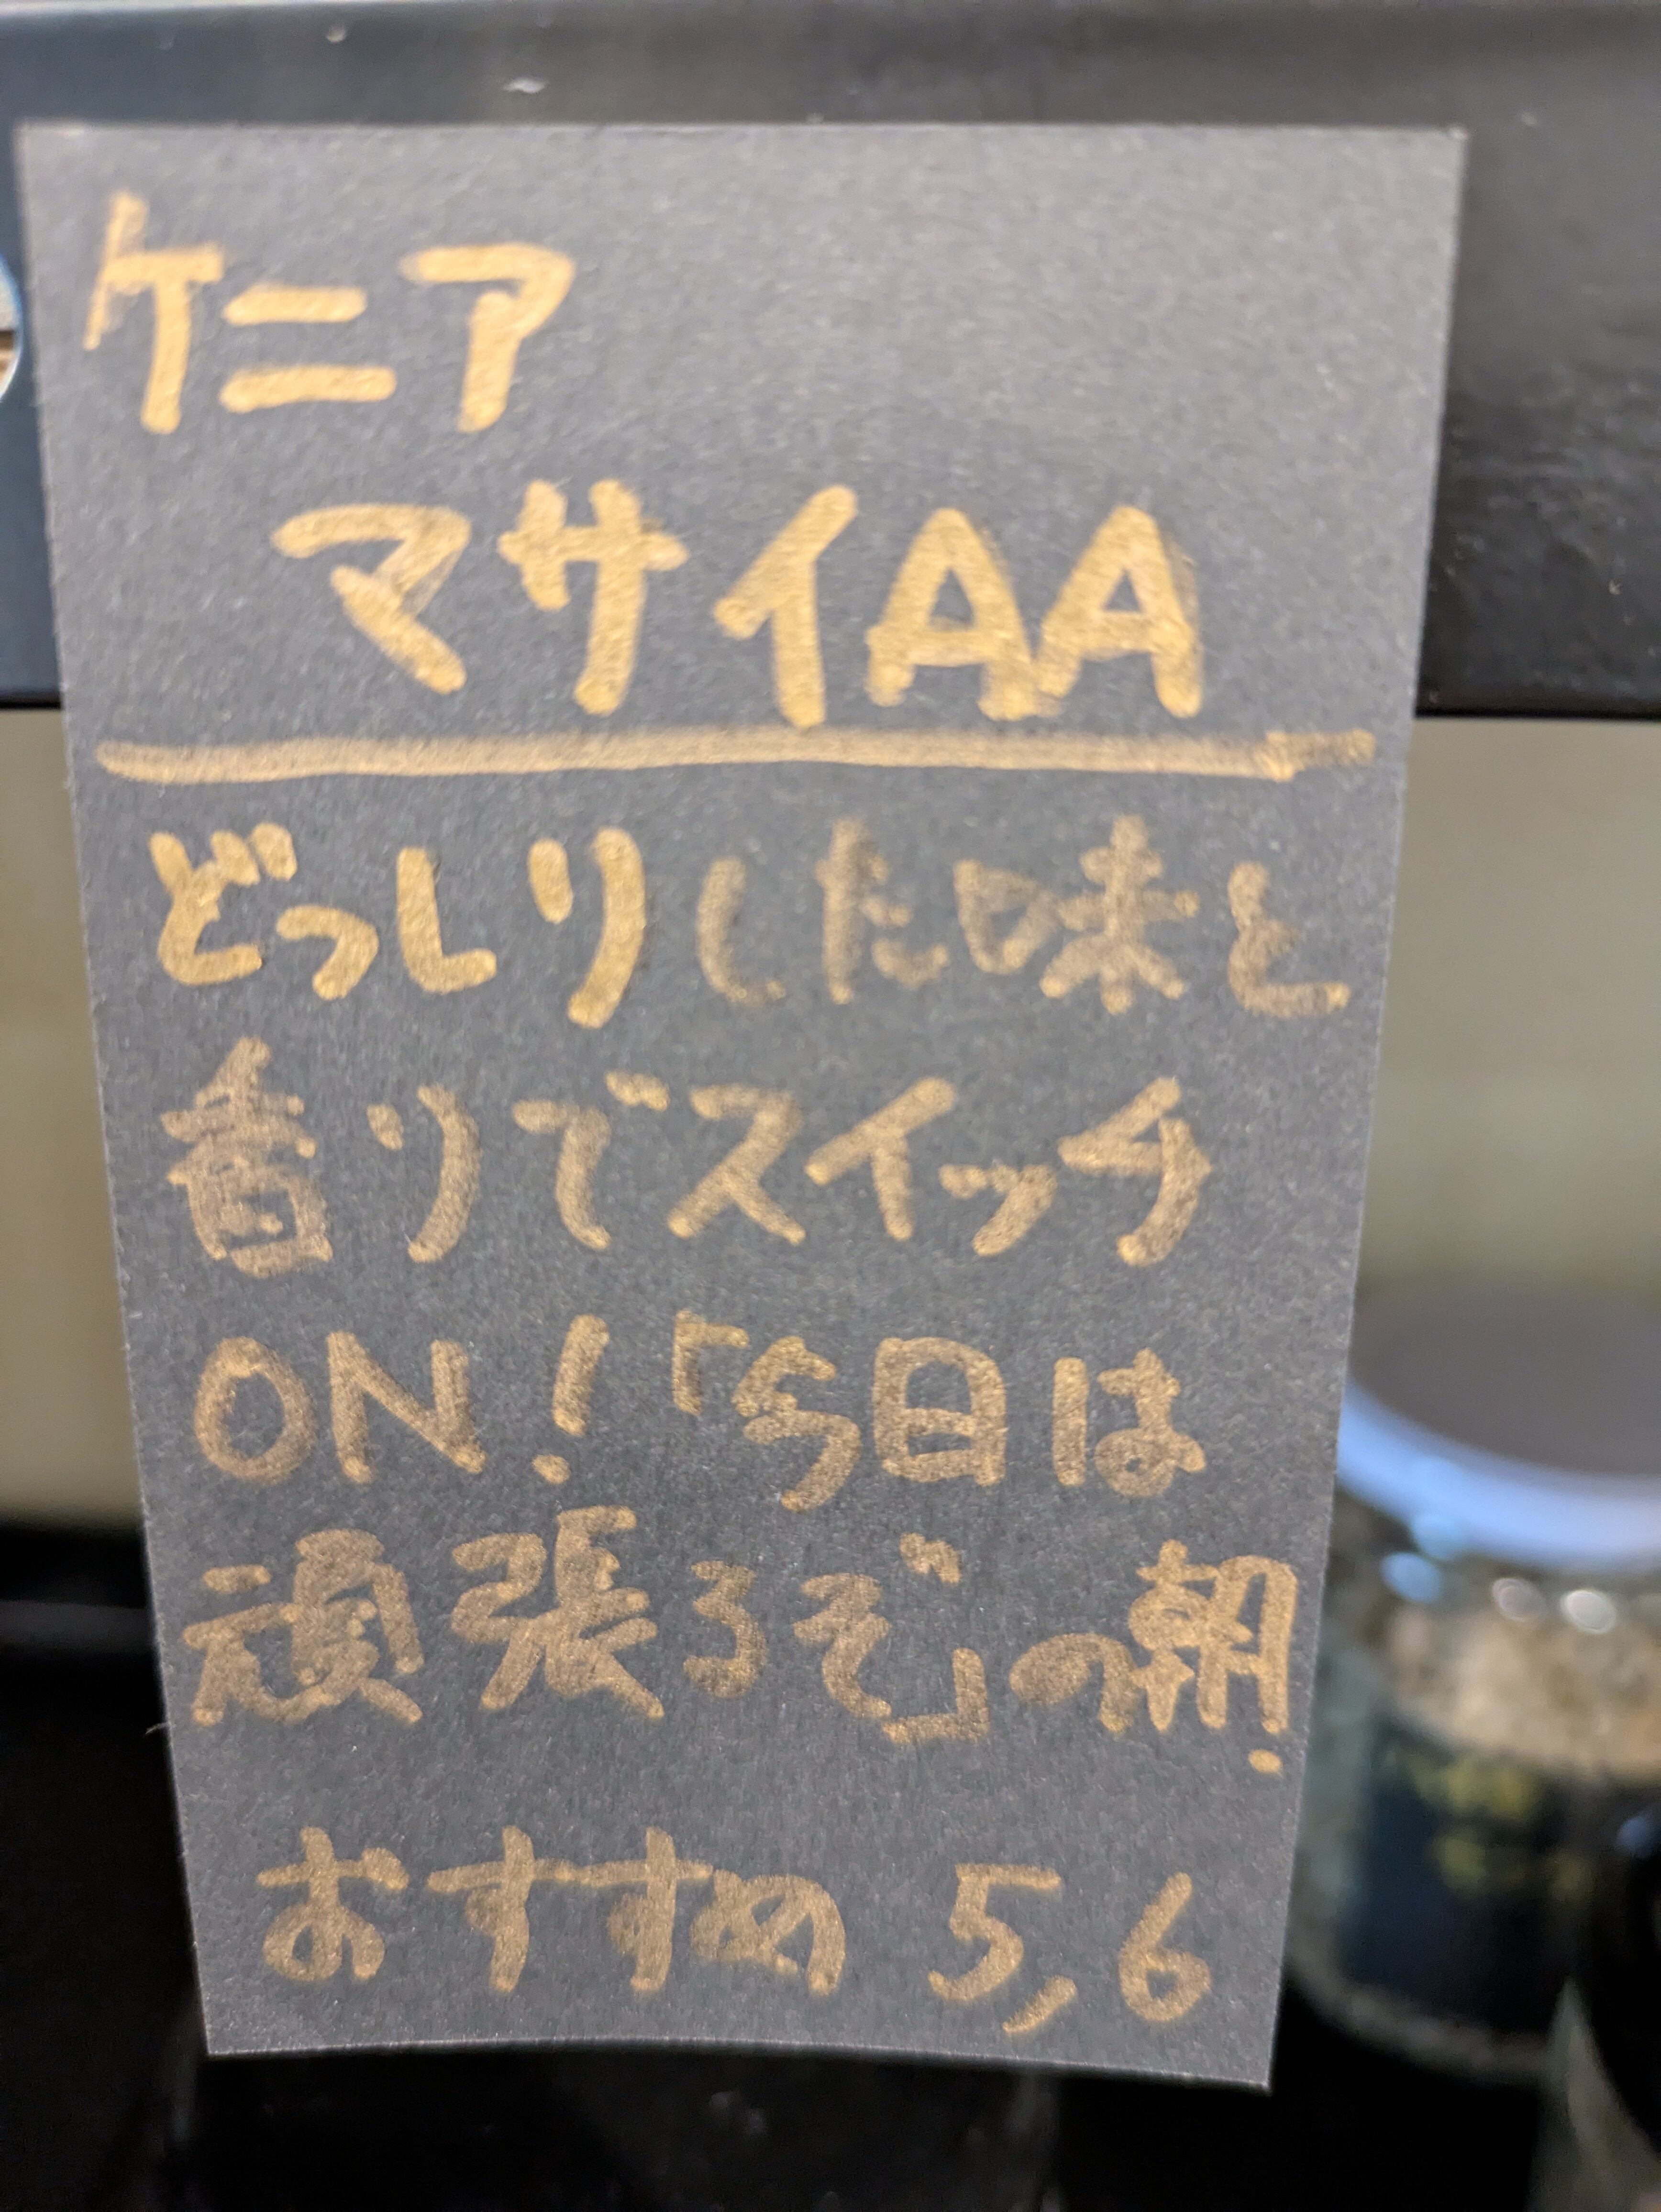 ケニア
マサイAA
どっしりした味と
香りでスイッチ
ON!「今日は
頑張るぞ」の朝!
おすすめ 5,6